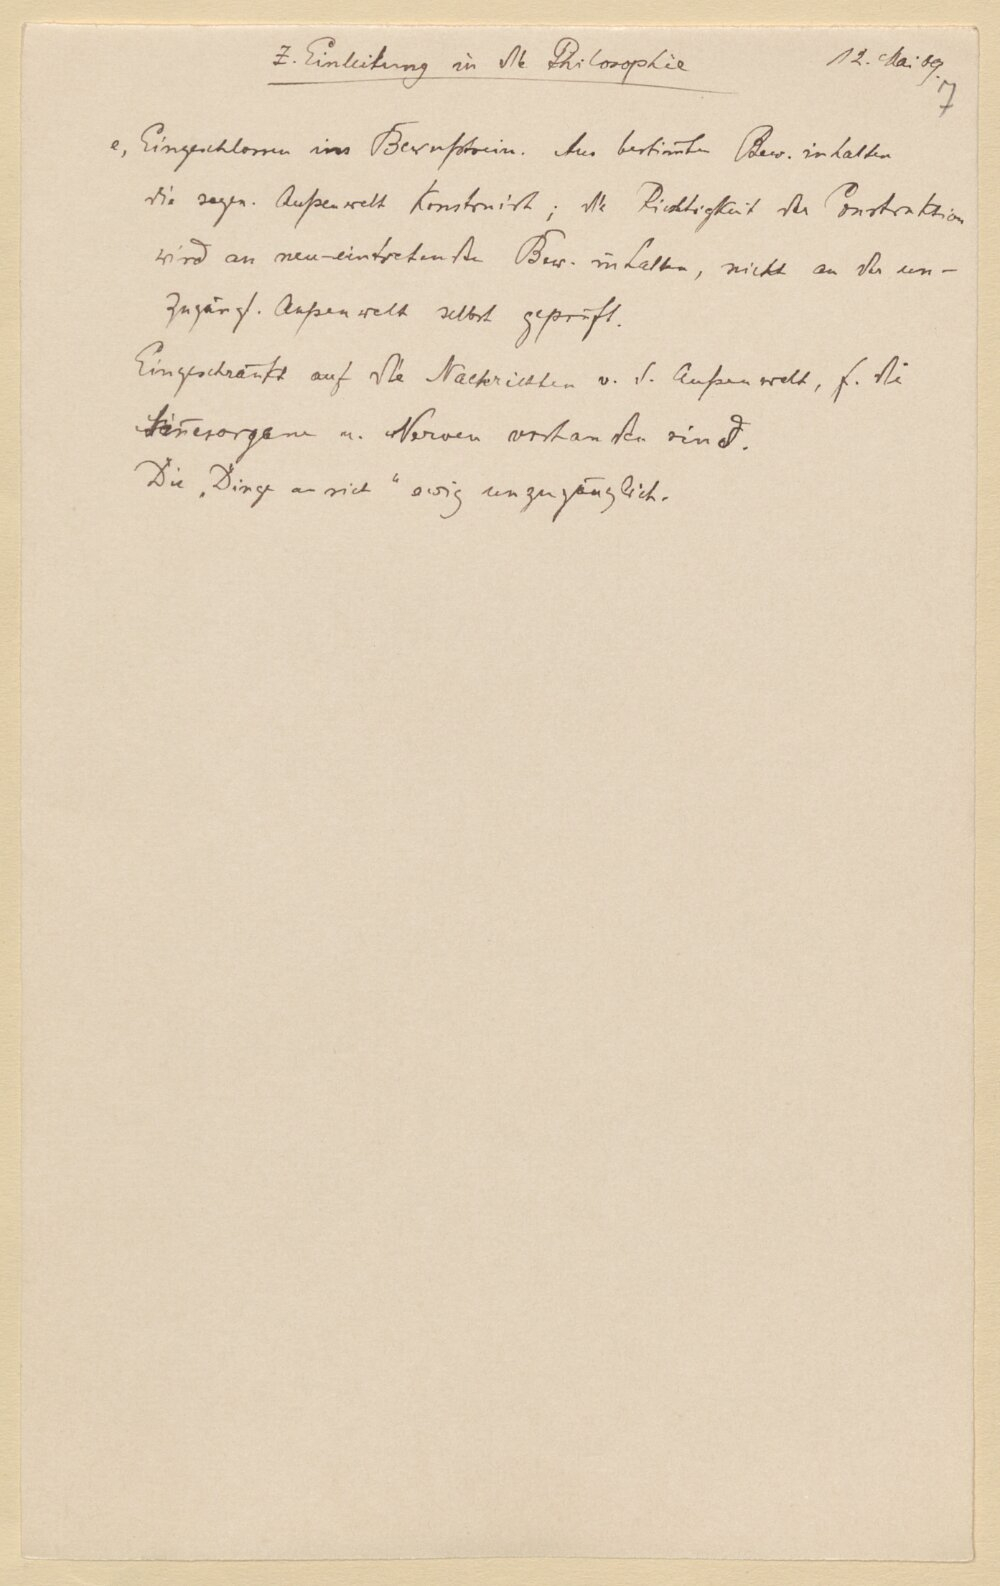 Z. Einleitung in die Philosophie 12. Mai 09
7
e, Eingeschlossen ins Bewußtsein. Aus bestim̄ten Bew. inhalten
die sogen. Außenwelt konstruirt; die Richtigkeit der Construktion
wird an neu-eintretenden Bew. inhalten, nicht an der un-
zugängl. Außenwelt selbst geprüft.
Eingeschränkt auf die Nachrichten v. d. Außenwelt, f. die
Sin̄esorgane u. Nerven vorhanden sind.
Die „Dinge an sich“ ewig unzugänglich.